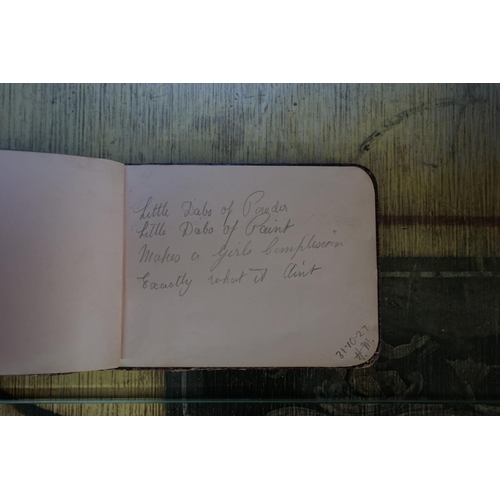 Little Dabs of Powder
Little Dabs of Paint
Makes a Girls Complexion
Exactly what it Aint
31-10-27
H.M.